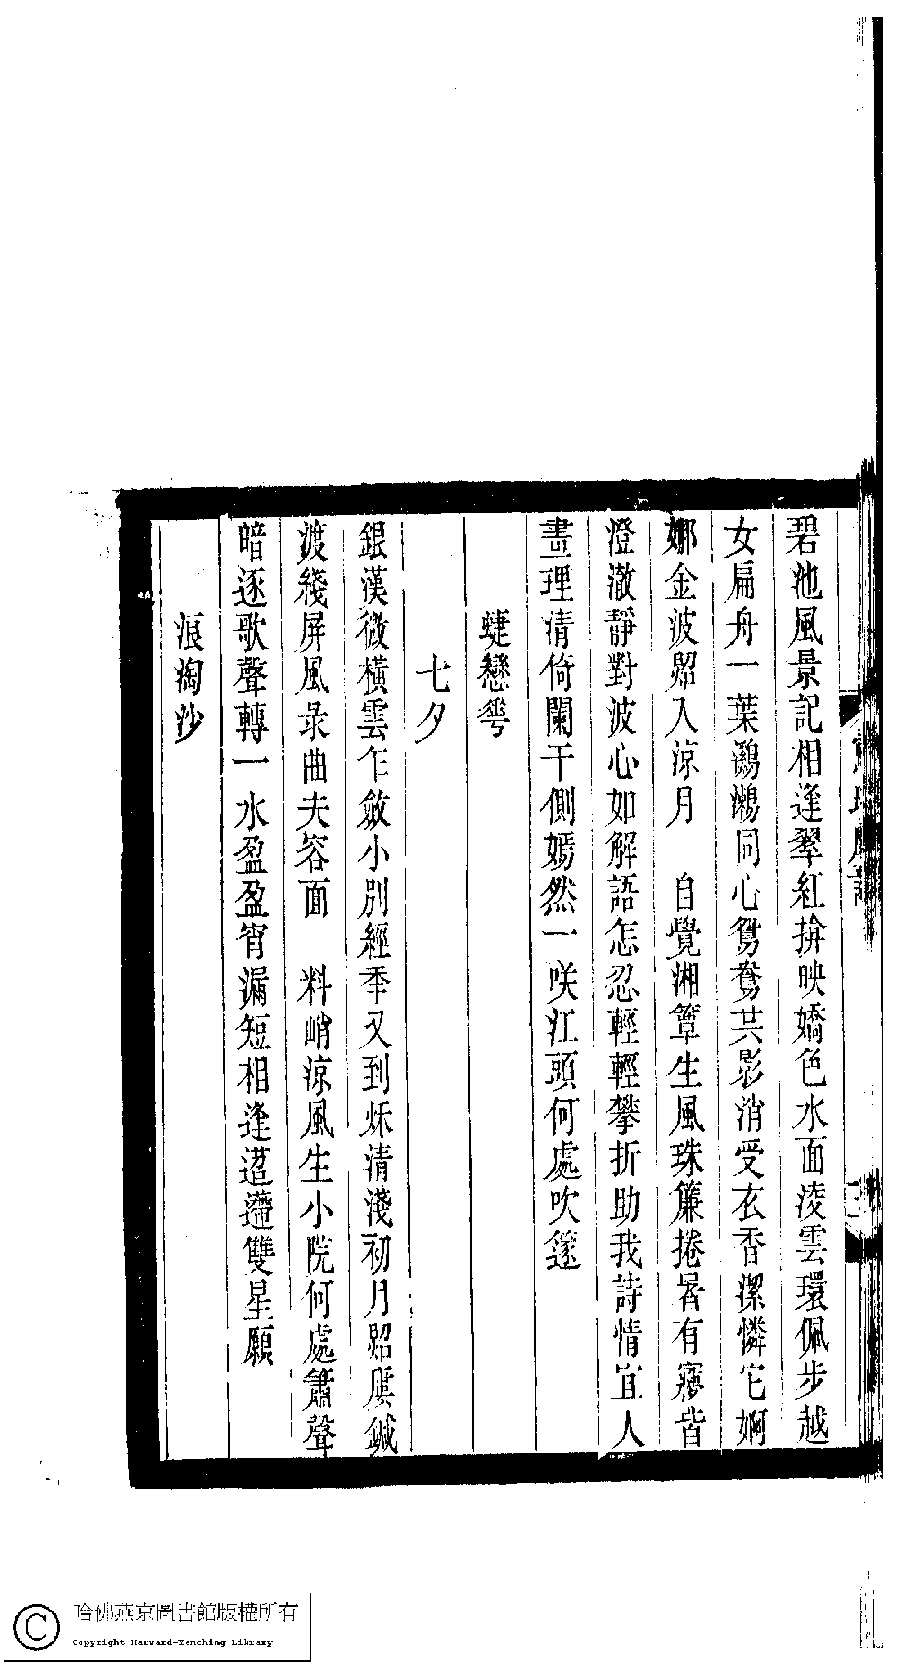 碧池風景記相逢翠紅揜映嬌色水面淩雲環佩步越
女扁舟一葉鸂鶒同心鴛鴦共影消受衣香潔憐它婀
娜金波照入涼月　自覺湘簟生風珠簾捲暑有寢皆
澄澈靜對波心如解語怎忍輕輕攀折助我詩情宜人
畫理清倚闌干側嫣然一咲江頭何處吹篴
蜨戀花
七夕
銀漢微橫雲乍斂小別經季又到秌清淺初月照虔鍼
渡綫屏風彔曲夫容面　料峭涼風生小院何處簫聲
暗逐歌聲轉一水盈盈宵漏短相逢迢遰雙星願
浪淘沙
哈佛燕京圖書館版權所有
Copyright Harvard-Yenching Library